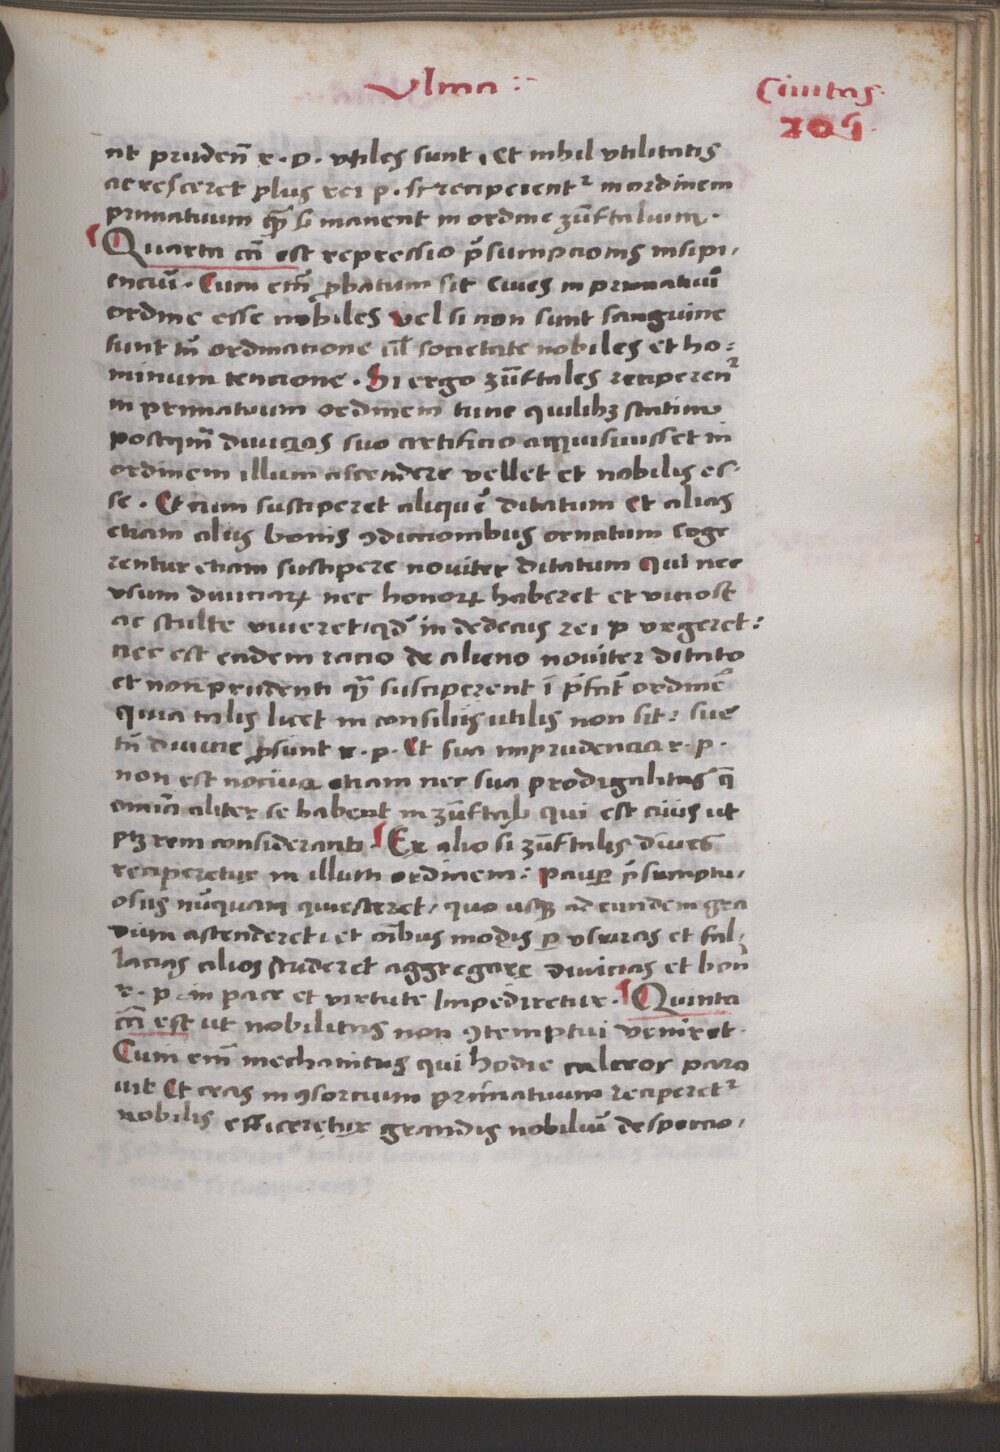 Vlma :~
Ciuitas
205
nt pruden̄ r. p. vtiles sunt, Et nihil vtilitatis
accresceret plus rei p. si reciperentᷣ in ordinem
primatuum qꝫ si manent in ordine zūftalium.
¶ Quarta cā est repressio p̄sumpcionis insipi,
enciū. Cum em̄ probatum sit ciues in primatuū
ordine esse nobiles vel si non sunt sanguine
sunt tn̄ ordinacione ul̄ societate nobiles et ho:
minum tencione. Si ergo zūftales reciperenᷣ
in primatuum ordinem tunc quilibꝫ statim
postqm̄ diuicias suo artificio acquisiuisset in
ordinem illum ascendere vellet et nobilis es-
se. Et cum susciperet aliquē ditatum et alias
etiam aliis bonis ꝯdicionibus ornatum coge
rentur etiam suscipere nouiter ditatum qui nec
vsum diuiciaꝝ nec honoꝝ haberet et viciose
ac stulte viueret, qd̄ in dedecus rei p vrgeret:
nec est eadem racio de alieno nouiter ditato
et non prudenti qē susciperent ī p̄fat̄ ordinē
quia talis licet in consiliis utilis non sit: sue
tn̄ diuicie prosunt r. p. Et sua imprudencia r. p.
non est nociua etiam nec sua prodigalitas q̄
omnia aliter se habent in zūftali qui est ciuis ut
ptꝫ rem consideranti. ¶ Ex alio si zūftalis diues
reciperetur in illum ordinem: pauꝑ p̄sumptu,
osus nūquam quiesceret, quo usqꝫ ad eundem gra
dum ascenderet, et oībus modis ꝑ vsuras et fal,
lacias alios studeret aggregare diuicias et bon̄
r. p. in pace et virtute impediretur. ¶ Quinta
cā est ut nobilitas non ꝯtemptui veniret.
Cum em̄ mechanicus qui hodie calceos para
uit Et cras in ꝯsorcium primatuum recipretᷣ
nobilis efficeretur grandis nobiliū despeccio,